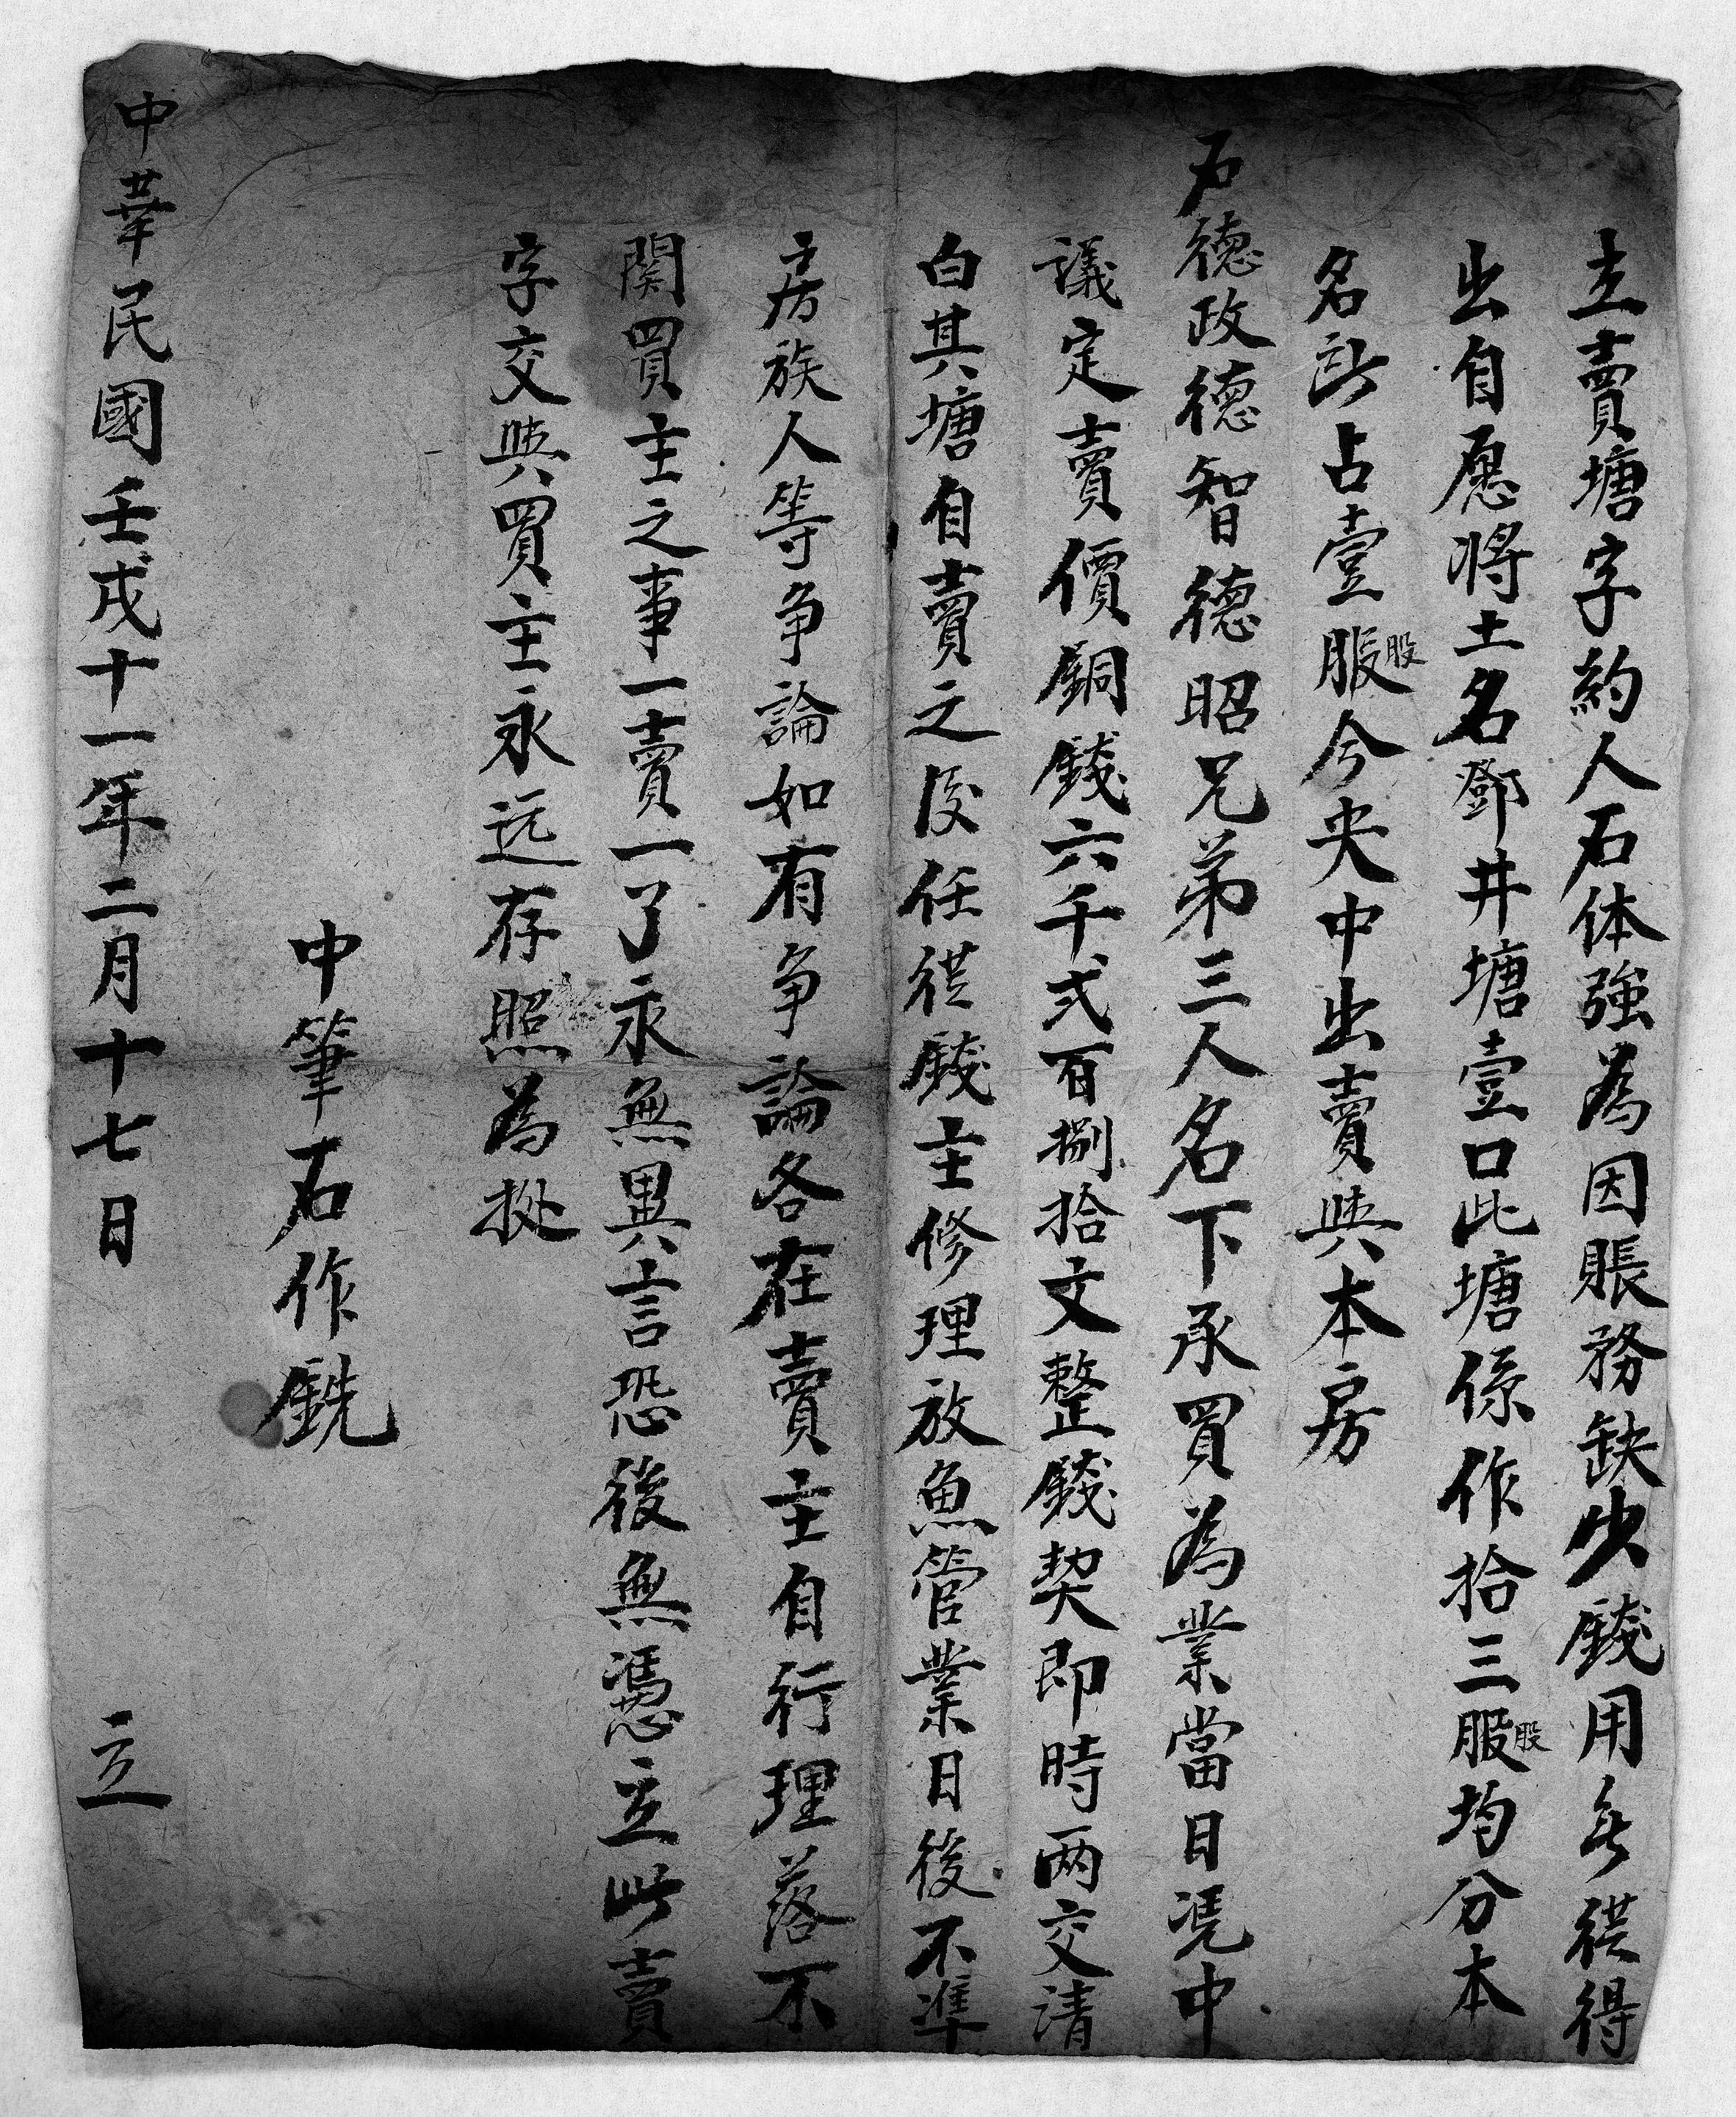 立賣塘字約人石体強為因賬務缺少錢用無從得
出自愿將土名鄧井塘壹口此塘係作拾三服股均分本
名計占壹服股今央中出賣與本房
石德政德智德昭兄弟三人名下承買為業當日憑中
議定賣價銅錢六千弍百捌拾文整錢契即時两交清
白其塘自賣之後任從錢主修理放魚管業日後不準
房族人等争論如有争論各在賣主自行理落不
関買主之事一賣一了永無異言恐後無憑立此賣
字交與買主永远存照為據
中筆石作銑
中華民國壬戌十一年二月十七日 立